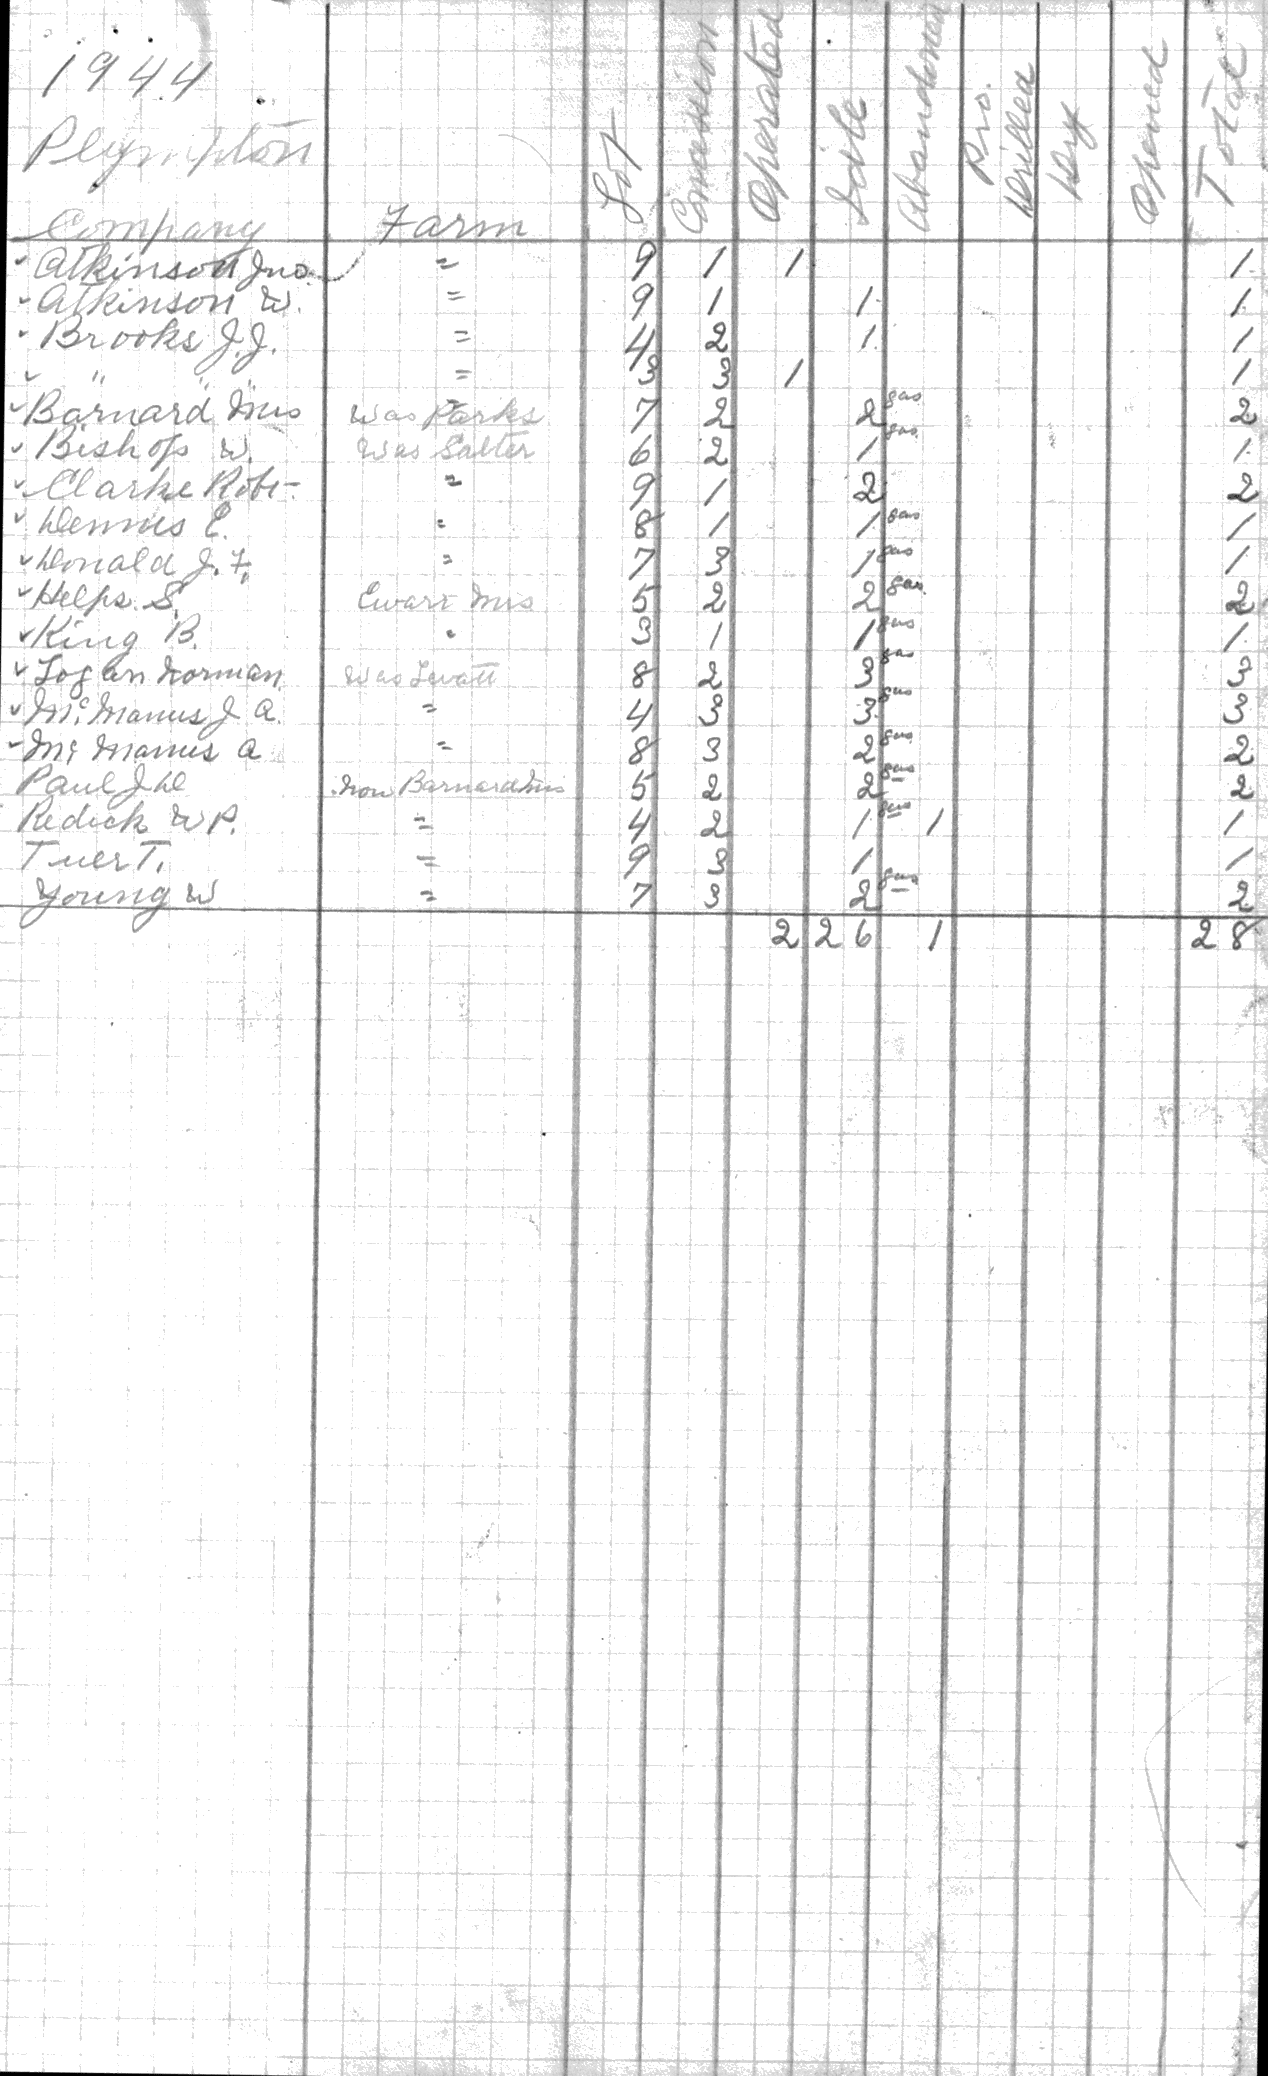 1944
Plympton
Company Farm Lot Concession Operated Idle Abandoned Pro. Drilled Dry Opened Total
✓ Atkinson Jno. " 9 1 1 1
✓ Atkinson W. " 9 1 1 1
✓ Brooks J.J. " 4 2 1 1
✓ " " " 3 3 1 1
✓ Barnard Mrs Was Parks 7 2 2 gas 2
✓ Bishop W. Was Salter 6 2 1 gas 1
✓ Clarke Robt. " 9 1 2 2
✓ Dennis E. " 8 1 1 gas 1
✓ Donald J. F. " 7 3 1 gas 1
✓ Helps. S. Ewart Mrs 5 2 2 gas. 2
✓ King B. " 3 1 1 gas 1
✓ Logan Norman Was 8 2 3 gas 3
✓ Mc Manus J A. " 4 3 3 gas 3
✓ Mc Manus A " 8 3 2 gas 2
Paul J W Now Barnard Mrs 5 2 2 gas 2
Redick W P. " 4 2 1 gas 1 1
Tuer T. " 9 3 1 1
Young W " 7 3 2 gas 2
2 26 1 28